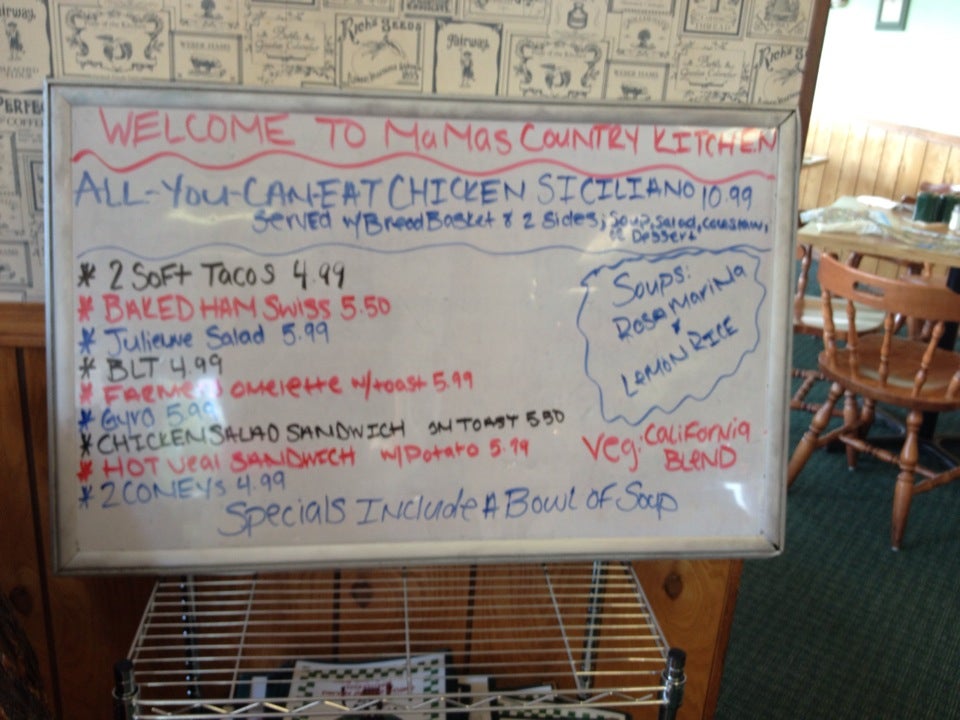 WELCOME TO MaMas COUNTRY KITCHEN
ALL-YOU-CAN-EAT CHICKEN SICILIANO 10.99
Served w/Bread Basket & 2 Sides; Soup, Salad, Coleslaw,
Dessert
* 2 Soft Tacos 4.99
* BAKED HAM Swiss 5.50
* Julienne Salad 5.99
* BLT 4.99
* FARMERS omelette w/toast 5.99
* Gyro 5.99
* CHICKEN SALAD SANDWICH ON TOAST 5.50
* HOT Veal SANDWICH w/Potato 5.99
* 2 CONEYS 4.99
Specials Include A Bowl of Soup
Soups:
Rosa Marina
&
LEMON RICE
Veg: California
BLEND
Rich's Seeds
Fairway
PERFE
COFFEE